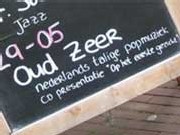 Jazz
29-05
Oud Zeer
nederlands talige popmuziek
CD presentatie "Op het eerste gehoor"